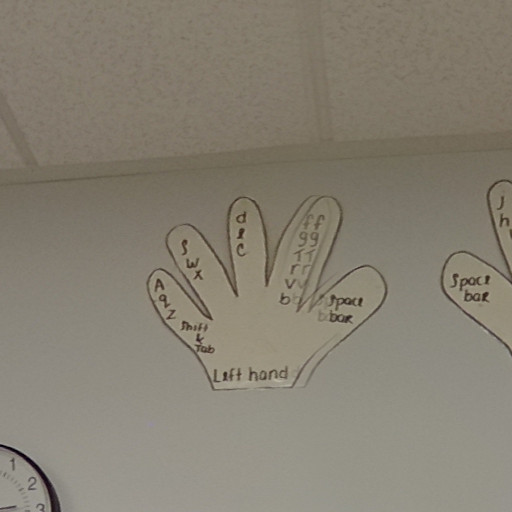 A
q
Z
Shift
&
Tab
S
W
X
d
e
C
f
g
T
r
V
b
Space
bar
Left hand
j
h
Space
bar
1
2
3